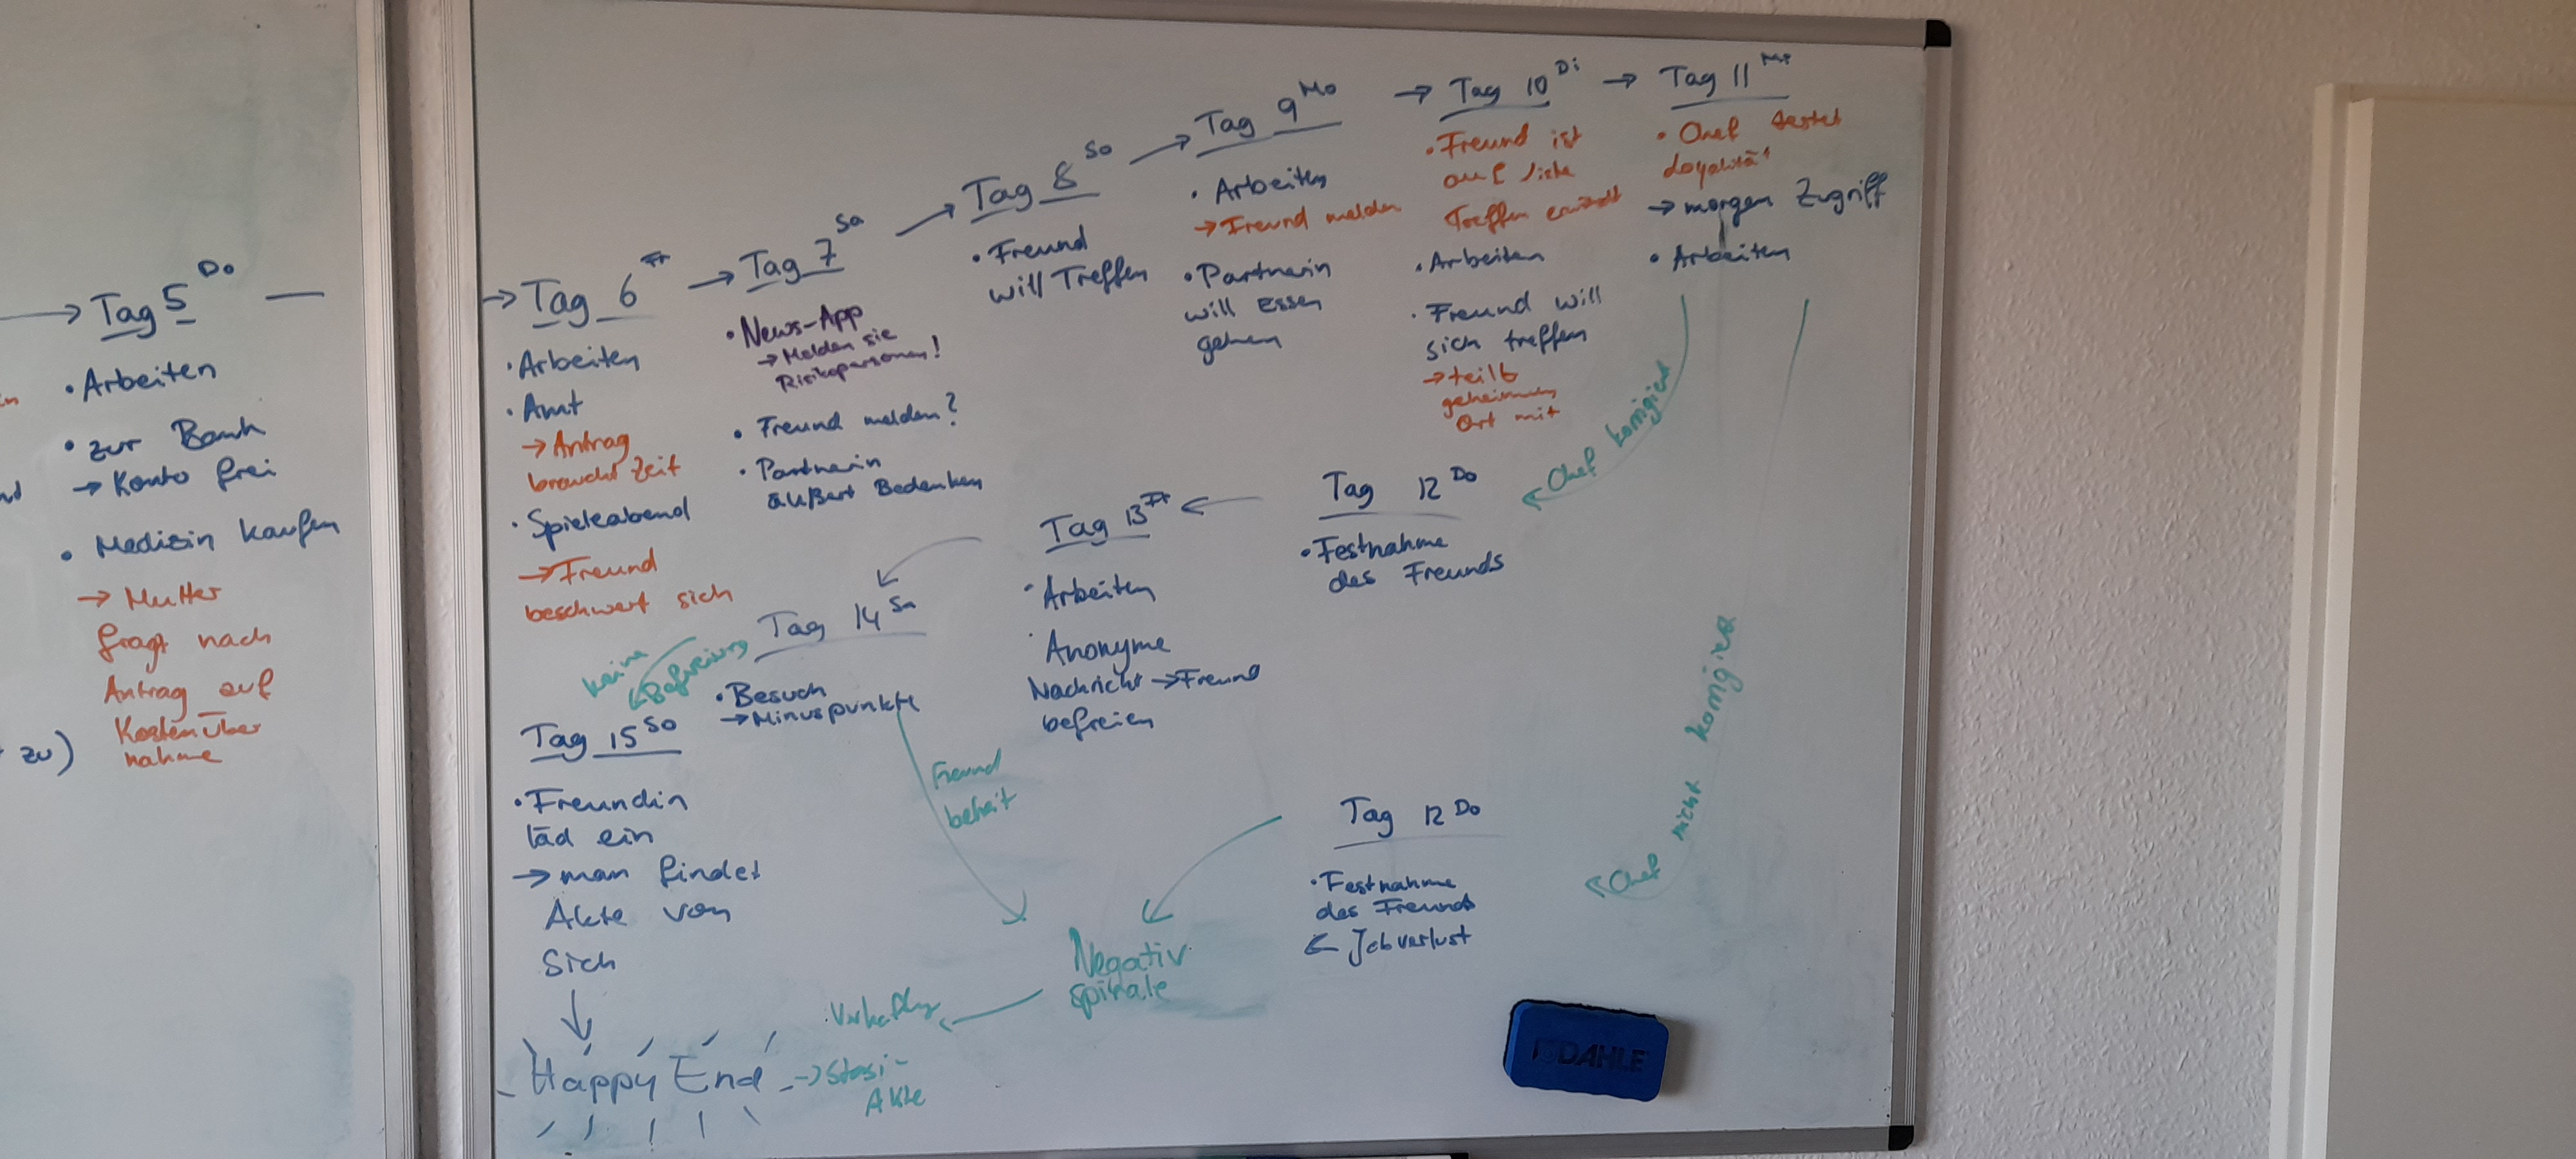 in
zu)
→ Tag 5 Do —
• Arbeiten
• zur Bank
→ Konto frei
• Medizin kaufen
→ Mutter
fragt nach
Antrag auf
Kostenüber
nahme
→ Tag 6 Fr
• Arbeiten
• Amt
→ Antrag
braucht Zeit
• Spieleabend
→ Freund
beschwert sich
→ Tag 7 Sa
• News-App
→ Melden sie
Risikopersonen!
• Freund melden?
• Partnerin
äußert Bedenken
→ Tag 8 So
• Freund
will Treffen
→ Tag 9 Mo
• Arbeiten
→ Freund melden
• Partnerin
will Essen
gehen
→ Tag 10 Di
• Freund ist
auf Liste
Treffen erwähnt
• Arbeiten
• Freund will
sich treffen
→ teilt
geheimen
Ort mit
→ Tag 11 Mi
• Chef testet
Loyalität
→ morgen Zugriff
• Arbeiten
Chef korrigiert
Chef nicht korrigiert
Tag 12 Do
• Festnahme
des Freunds
Tag 13 Fr
• Arbeiten
• Anonyme
Nachricht → Freund
befreien
Tag 14 Sa
• Besuch
→ Minuspunkte
keine
Befreiung
Freund
befreit
Tag 15 So
• Freundin
läd ein
→ man findet
Akte von
sich
Tag 12 Do
• Festnahme
des Freunds
← Jobverlust
Negativ
spirale
Verhaftung
Happy End
→ Stasi-
Akte
DAHLE